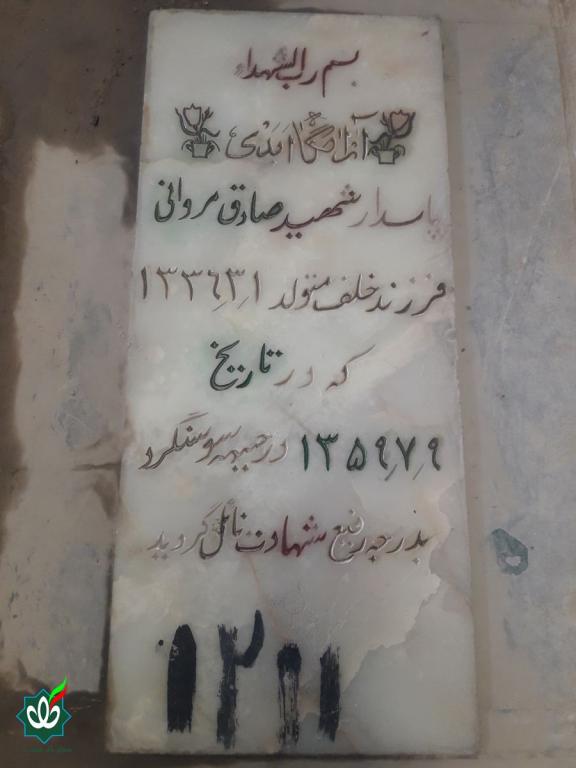 بسم رب الشهداء
آرامگاه ابدی
پاسدار شهید صادق مروانی
فرزند خلف متولد ۱۳۳۶٫۳٫۱
که در تاریخ
۱۳۵۹٫۷٫۹ در جبهه سوسنگرد
بدرجه رفیع شهادت نائل گردید
۱۲۱۱